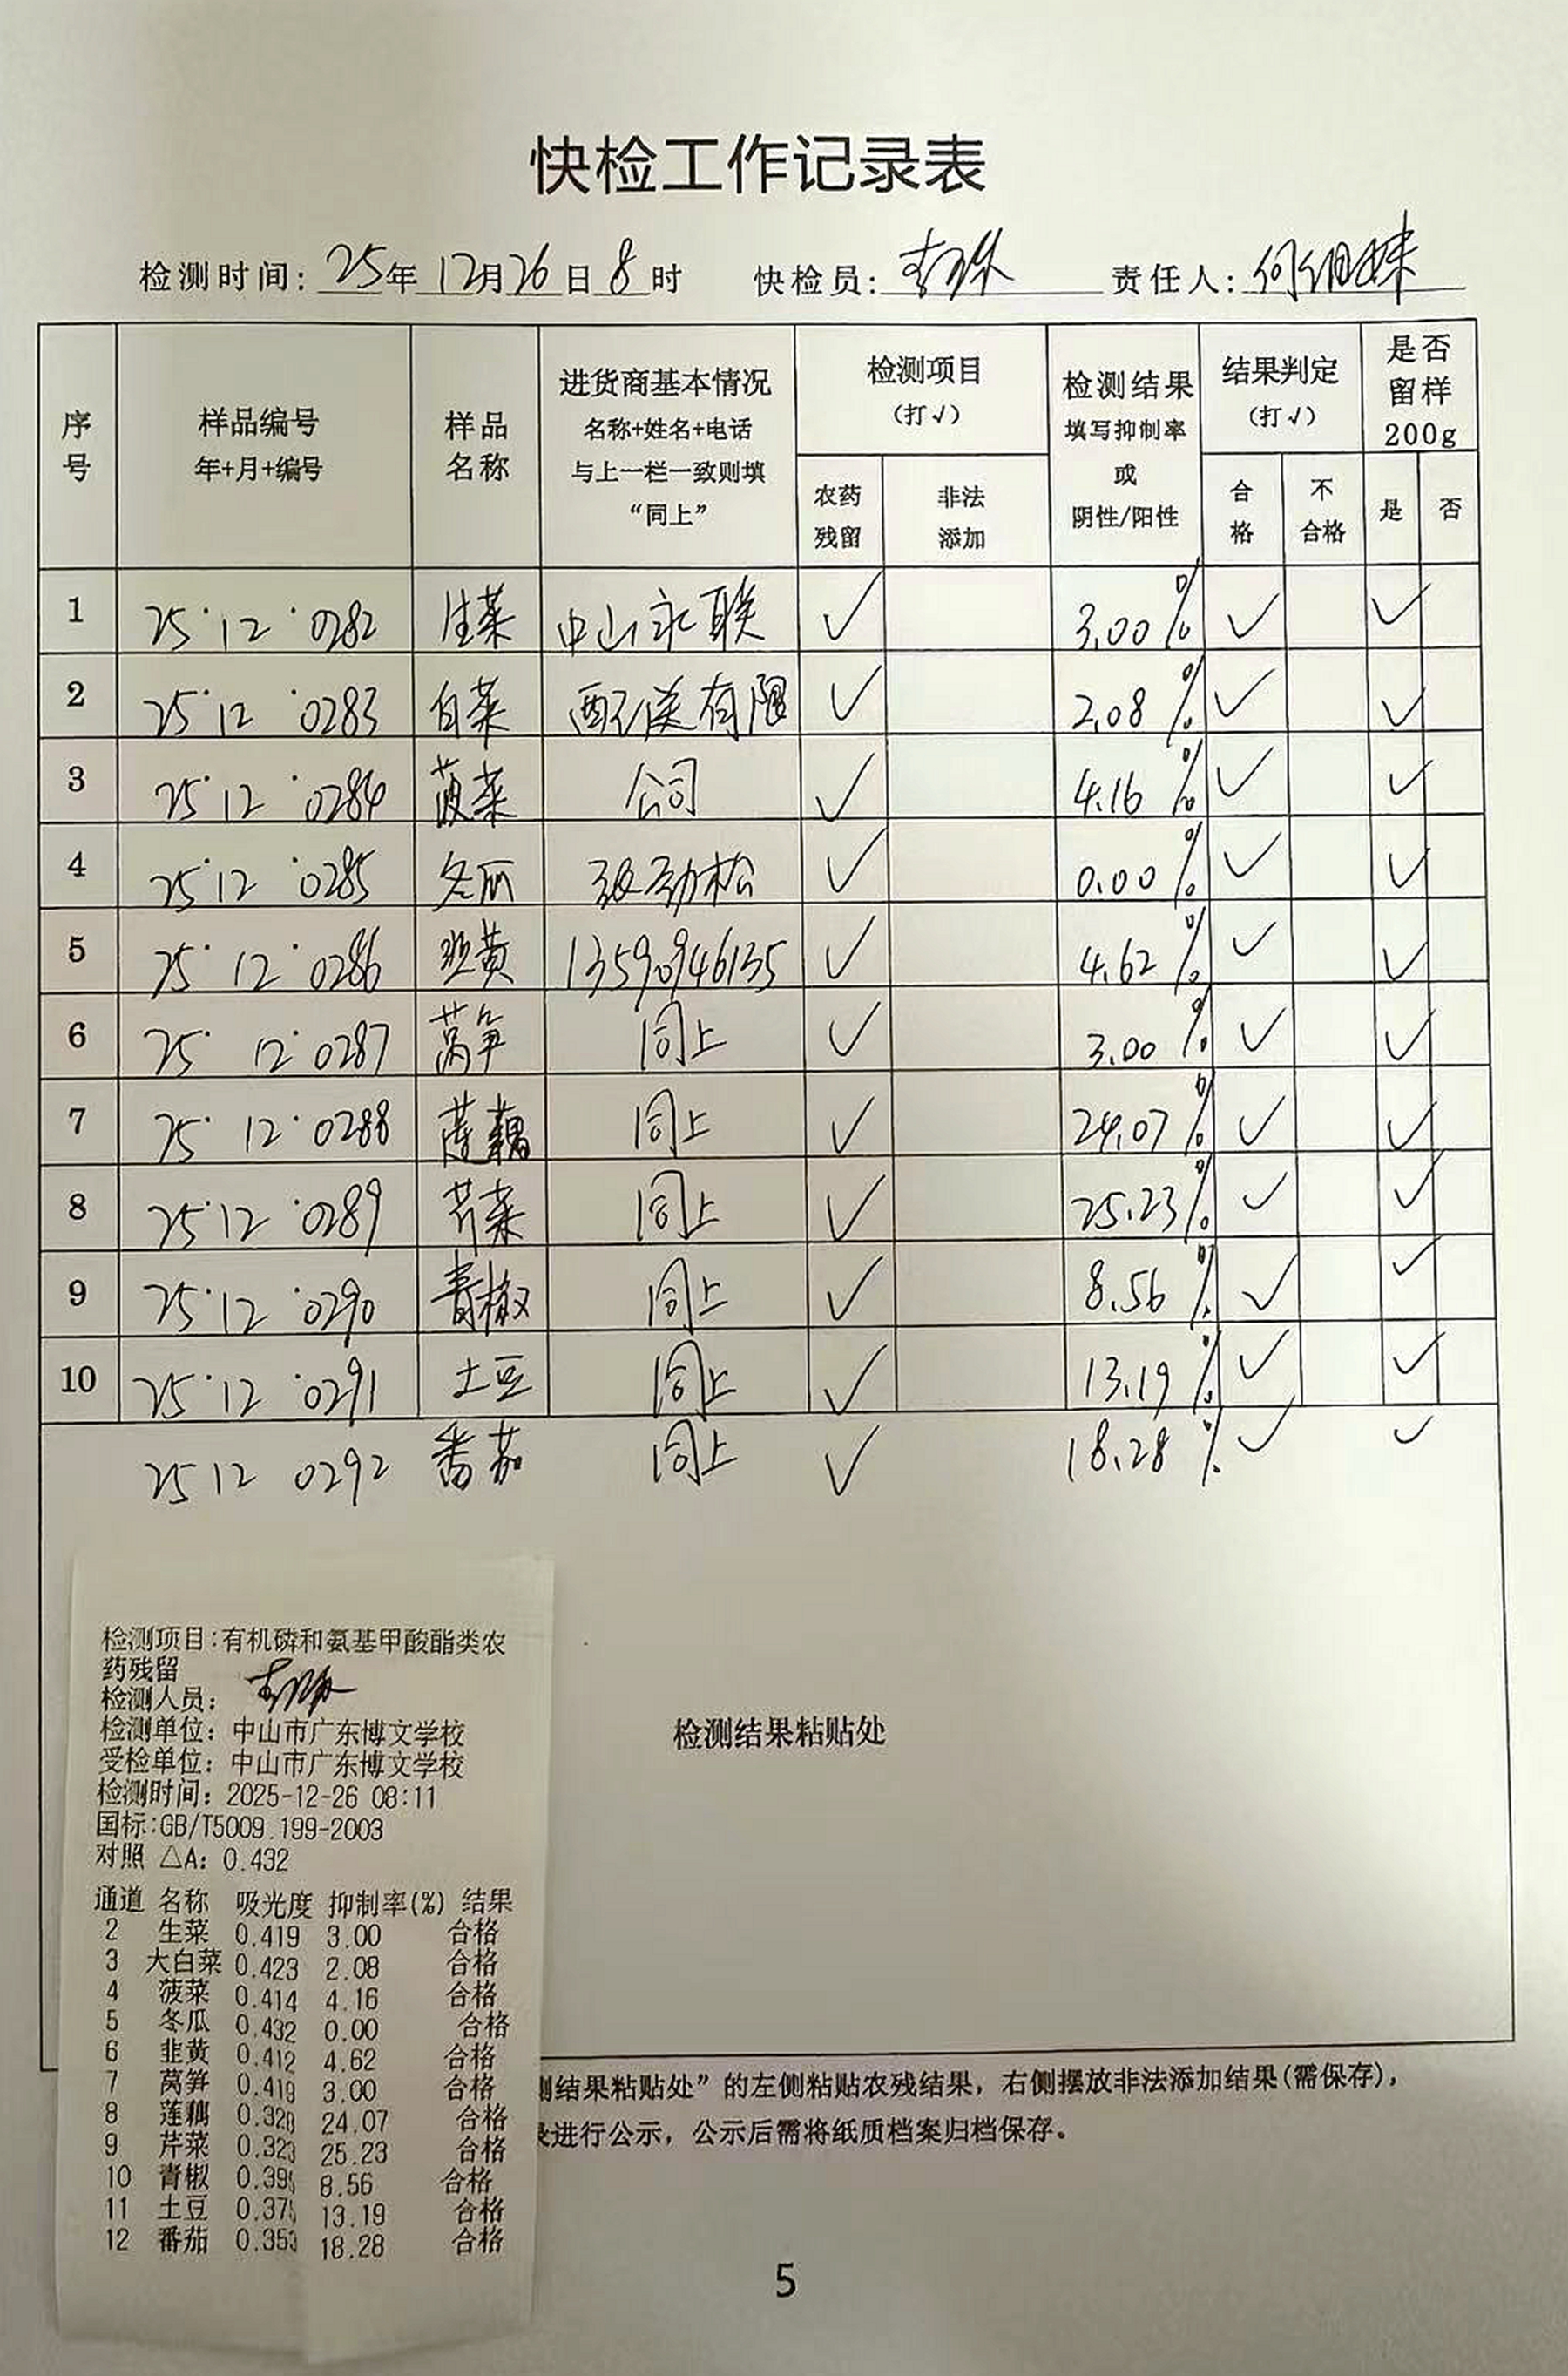 快检工作记录表
检测时间: 25年12月26日8时 快检员: 责任人: 何细妹
序号 样品编号 年+月+编号 样品名称 进货商基本情况 名称+姓名+电话 与上一栏一致则填“同上” 检测项目 (打√) 农药残留 非法添加 检测结果 填写抑制率 或 阴性/阳性 结果判定 (打√) 合格 不合格 是否留样 200g 是 否
1 25·12·0282 生菜 中山永联 ✓ 3.00% ✓ ✓
2 25·12·0283 白菜 配送有限 ✓ 2.08% ✓ ✓
3 25·12·0284 菠菜 公司 ✓ 4.16% ✓ ✓
4 25·12·0285 冬瓜 劲松 ✓ 0.00% ✓ ✓
5 25·12·0286 韭黄 13590946135 ✓ 4.62% ✓ ✓
6 25·12·0287 莴笋 同上 ✓ 3.00% ✓ ✓
7 25·12·0288 莲藕 同上 ✓ 24.07% ✓ ✓
8 25·12·0289 芹菜 同上 ✓ 25.23% ✓ ✓
9 25·12·0290 青椒 同上 ✓ 8.56% ✓ ✓
10 25·12·0291 土豆 同上 ✓ 13.19% ✓ ✓
25 12 0292 番茄 同上 ✓ 18.28% ✓ ✓
检测结果粘贴处
检测项目:有机磷和氨基甲酸酯类农
药残留
检测人员:
检测单位: 中山市广东博文学校
受检单位: 中山市广东博文学校
检测时间: 2025-12-26 08:11
国标:GB/T5009.199-2003
对照 △A: 0.432
通道 名称 吸光度 抑制率(%) 结果
2 生菜 0.419 3.00 合格
3 大白菜 0.423 2.08 合格
4 菠菜 0.414 4.16 合格
5 冬瓜 0.432 0.00 合格
6 韭黄 0.412 4.62 合格
7 莴笋 0.419 3.00 合格
8 莲藕 0.328 24.07 合格
9 芹菜 0.323 25.23 合格
10 青椒 0.395 8.56 合格
11 土豆 0.375 13.19 合格
12 番茄 0.353 18.28 合格
测结果粘贴处”的左侧粘贴农残结果，右侧摆放非法添加结果(需保存)，
录进行公示，公示后需将纸质档案归档保存。
5